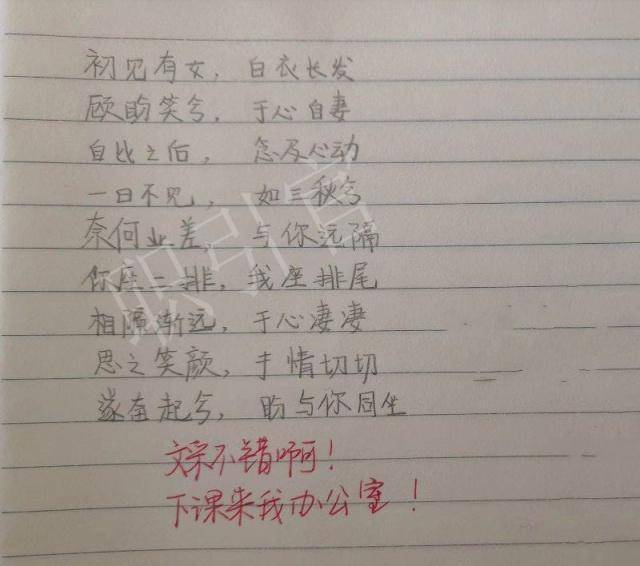 初见有女，白衣长发
顾盼笑兮，于心自妻
自此之后，怎及心动
一日不见，如三秋兮
奈何业差，与你远隔
你座二排，我座排尾
相隔渐远，于心凄凄
思之笑颜，于情切切
遂奋起兮，盼与你同坐
文采不错啊！
下课来我办公室！
职引官